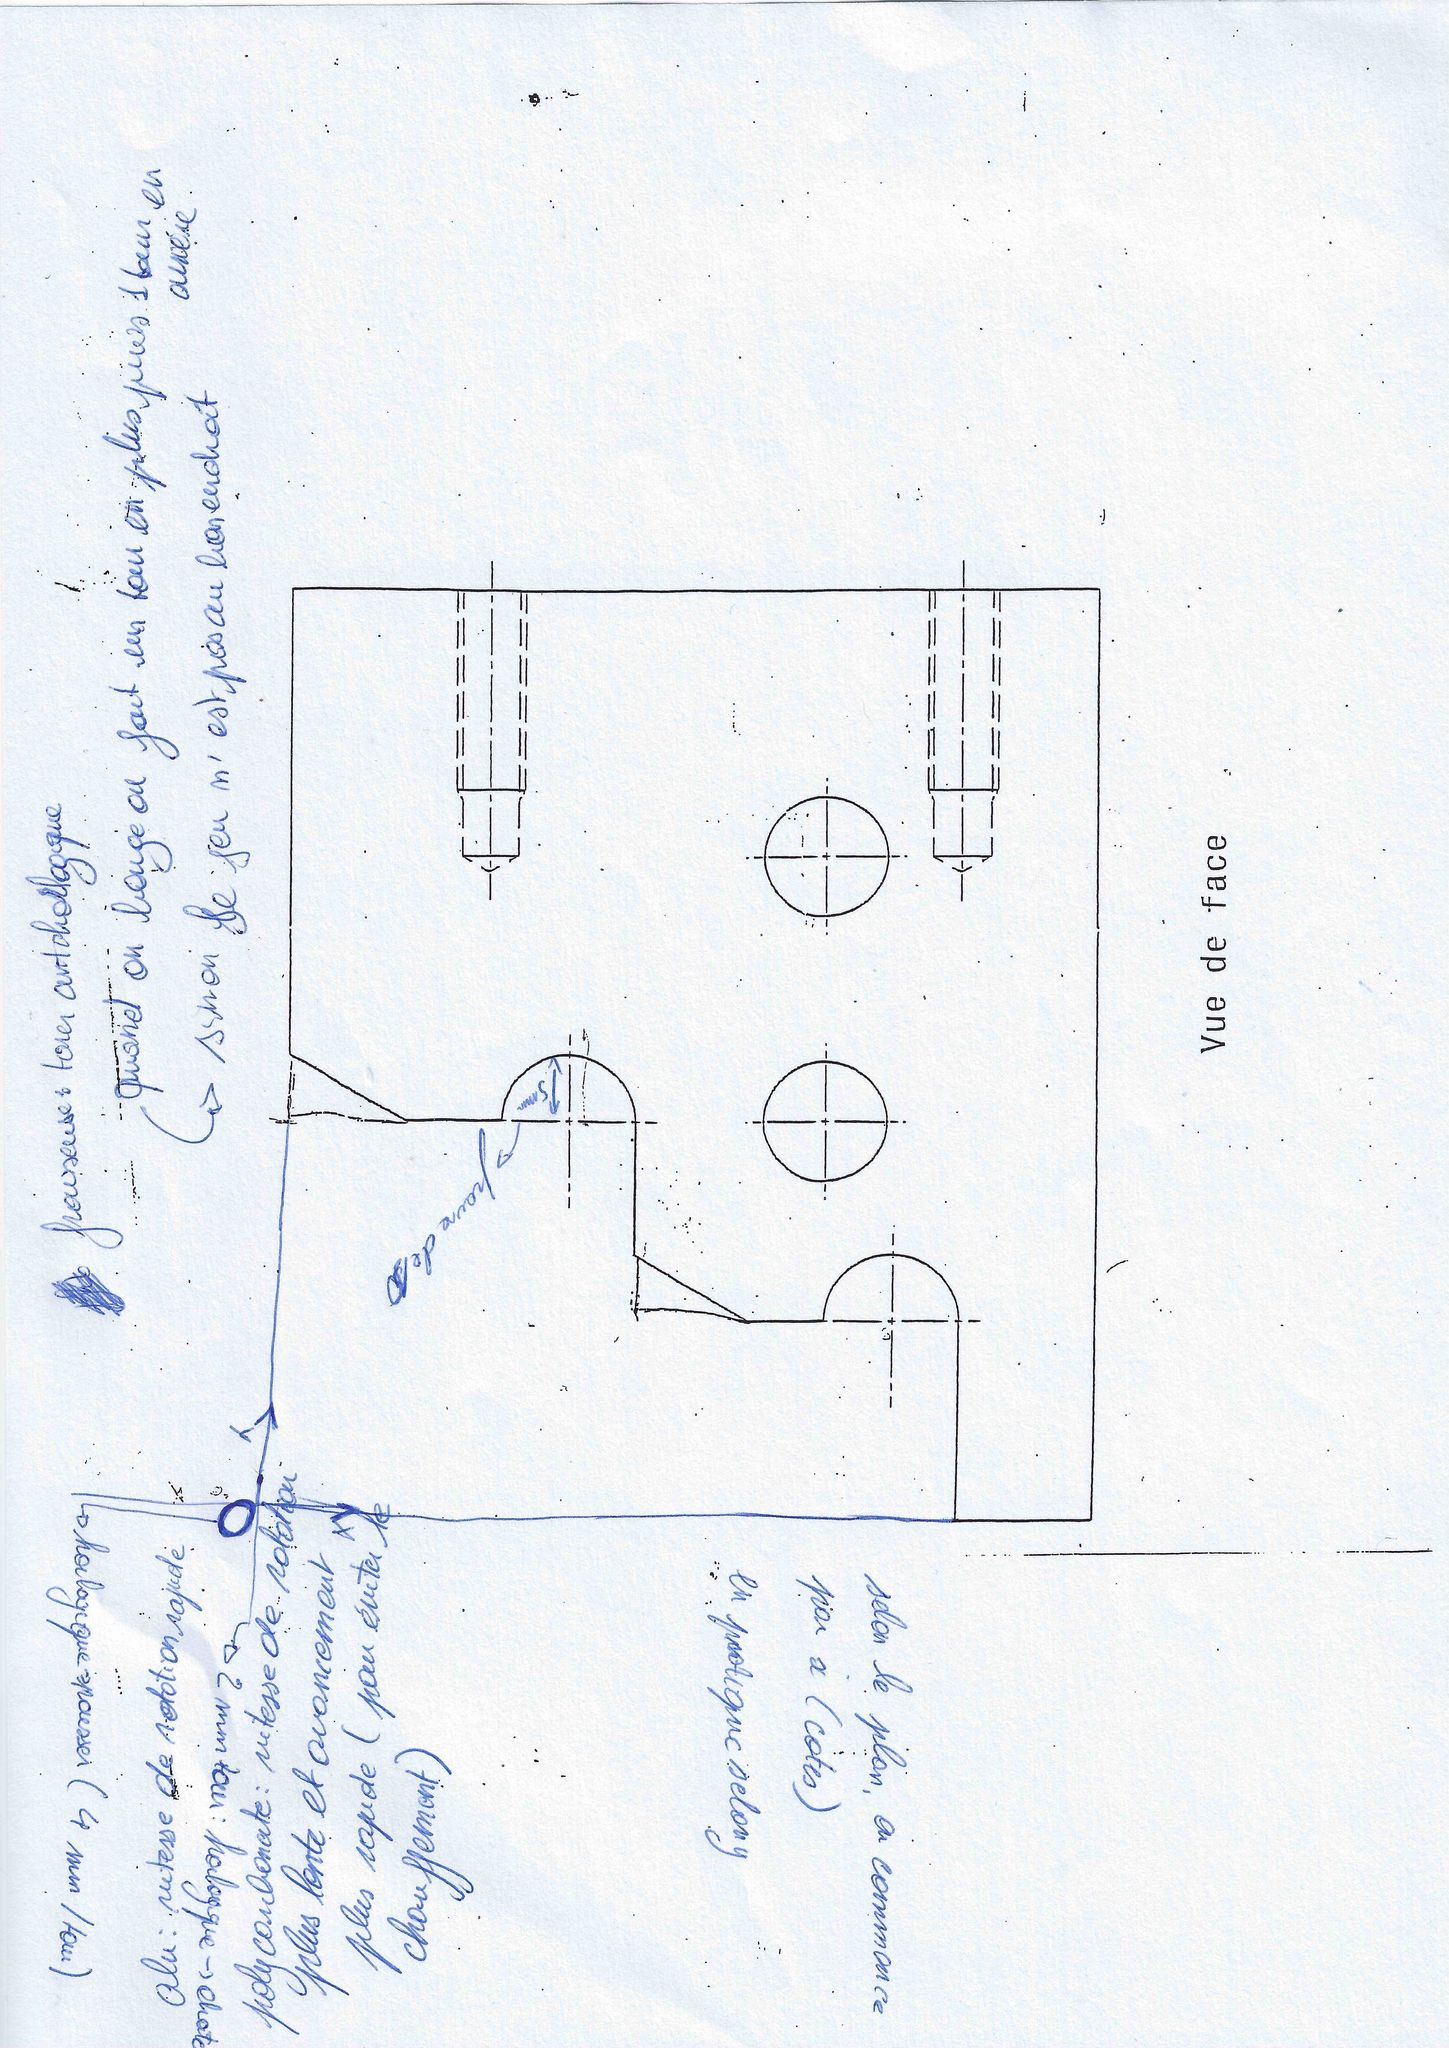 fraiseuse: tourer antihorlogique
quand on bouge on fait un tour en plus puis 1 tour en
arrière
sinon le jeu n'est pas au bon endroit
↳ horlogique → pousser (4 mm / tour)
alu: vitesse de rotation rapide
↳ 2 mm tour: horlogique → droite
polycarbonate: vitesse de rotation
plus lente et avancement
plus rapide (pour éviter le
chauffement)
Y
X
fraise de 10
5mm
selon le plan, on commence
par x (cotes)
en pratique selon y
Vue de face